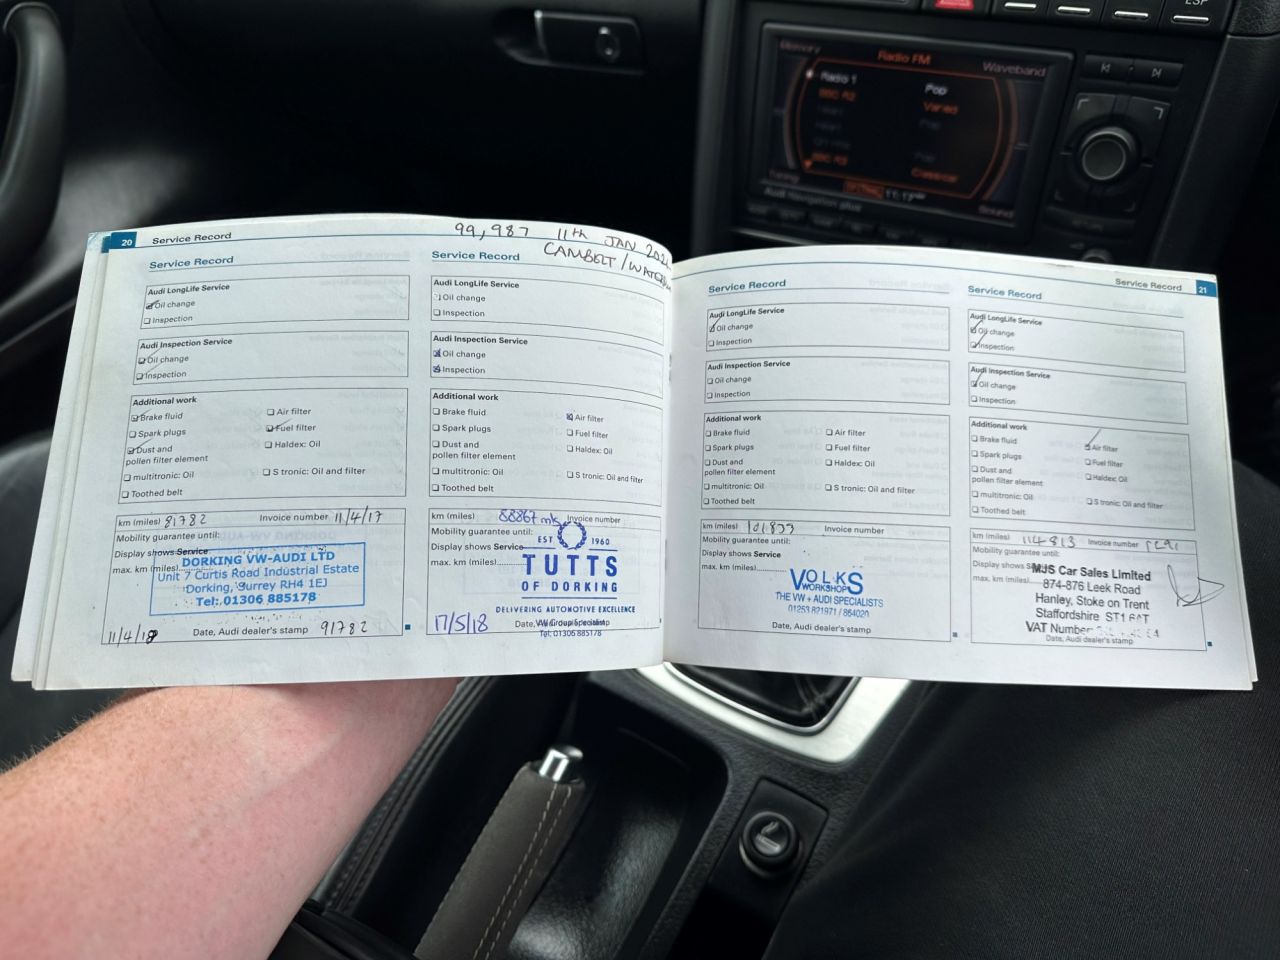 ESP
Memory
Radio FM
Waveband
Radio 1
Pop
BBC R2
Varied
BBC R3
Classical
Tuning
Sound
Audi Navigation plus
20 Service Record
99,987 11th JAN
CAMBELT /
Service Record
Audi LongLife Service
Oil change
Inspection
Audi Inspection Service
Oil change
Inspection
Additional work
Brake fluid
Air filter
Spark plugs
Fuel filter
Dust and
pollen filter element
Haldex: Oil
multitronic: Oil
S tronic: Oil and filter
Toothed belt
km (miles) 81782 Invoice number 11/4/17
Mobility guarantee until:
Display shows Service
max. km (miles)
DORKING VW-AUDI LTD
Unit 7 Curtis Road Industrial Estate
Dorking, Surrey RH4 1EJ
Tel: 01306 885178
Date, Audi dealer's stamp 91782
Service Record
Audi LongLife Service
Oil change
Inspection
Audi Inspection Service
Oil change
Inspection
Additional work
Brake fluid
Air filter
Spark plugs
Fuel filter
Dust and
pollen filter element
Haldex: Oil
multitronic: Oil
S tronic: Oil and filter
Toothed belt
km (miles) 88867 mls Invoice number
Mobility guarantee until:
Display shows Service
max. km (miles)
EST 1960
TUTTS
OF DORKING
DELIVERING AUTOMOTIVE EXCELLENCE
VW Group Specialist
Tel: 01306 885178
17/5/18
Service Record 21
Service Record
Audi LongLife Service
Oil change
Inspection
Audi Inspection Service
Oil change
Inspection
Additional work
Brake fluid
Air filter
Spark plugs
Fuel filter
Dust and
pollen filter element
Haldex: Oil
multitronic: Oil
S tronic: Oil and filter
Toothed belt
km (miles) 101833 Invoice number
Mobility guarantee until:
Display shows Service
max. km (miles)
VOLKS
WORKSHOPS
THE VW + AUDI SPECIALISTS
01253 821971 / 864020
Date, Audi dealer's stamp
Service Record
Audi LongLife Service
Oil change
Inspection
Audi Inspection Service
Oil change
Inspection
Additional work
Brake fluid
Air filter
Spark plugs
Fuel filter
Dust and
pollen filter element
Haldex: Oil
multitronic: Oil
S tronic: Oil and filter
Toothed belt
km (miles) 114813 Invoice number
Mobility guarantee until:
max. km (miles)
MJS Car Sales Limited
874-876 Leek Road
Hanley, Stoke on Trent
Staffordshire
VAT Number
Date, Audi dealer's stamp